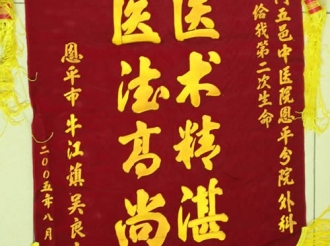 五邑中医院恩平分院外科
给我第二次生命
医术精湛
医法高尚
恩平市牛江镇吴良
二00五年八月